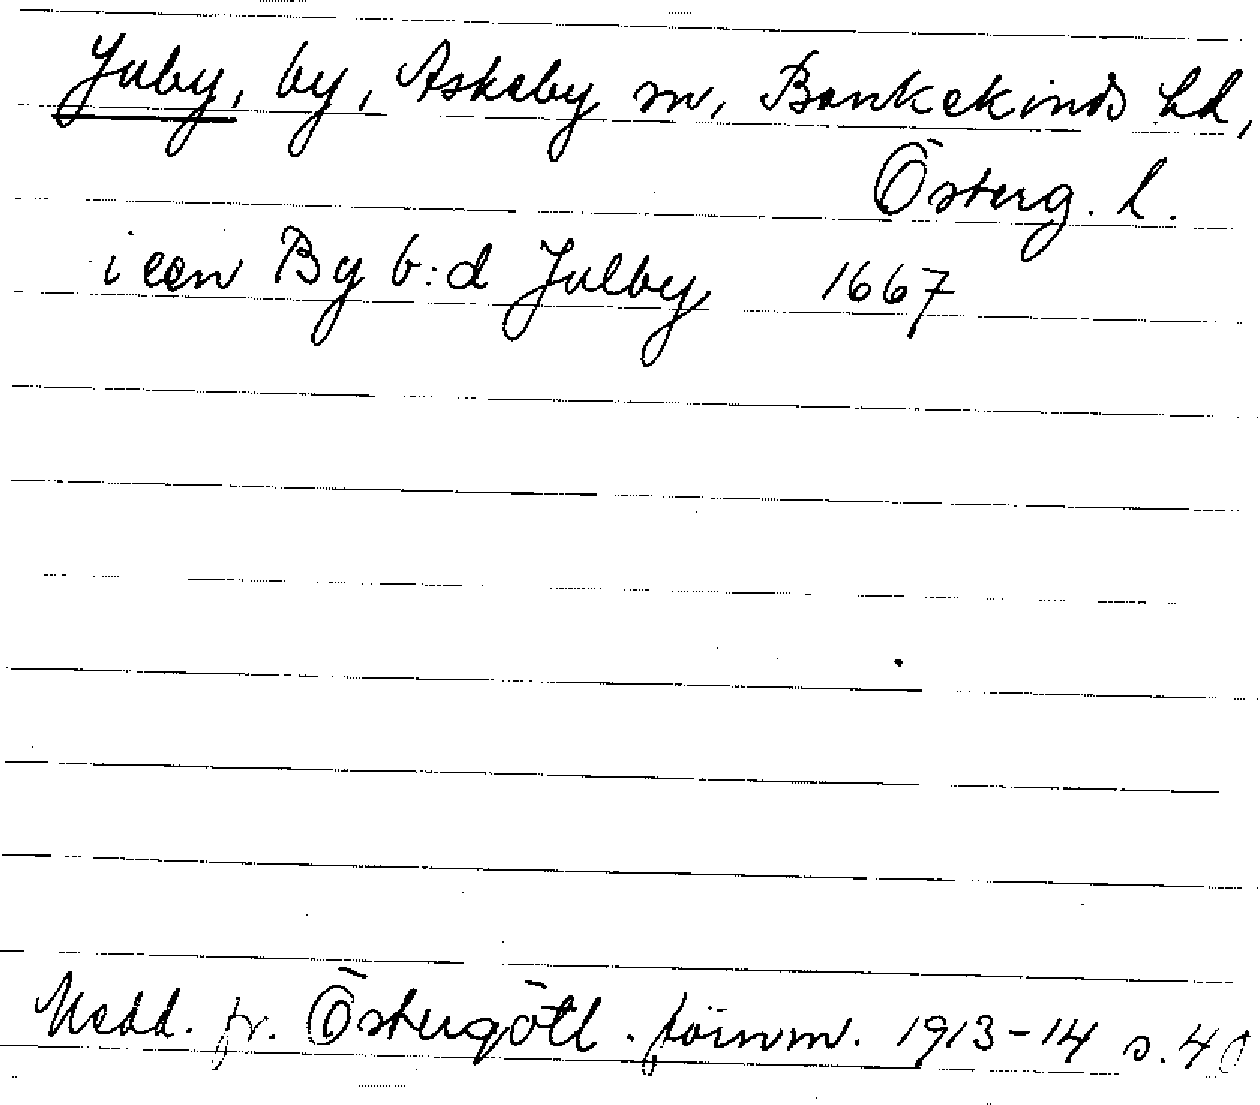 Julby, by, Askeby sn, Bankekinds hd,
Österg. l.
i een By b:d Julby 1667
Medd. fr. Östergötl. fornm. 1913-14 s. 40